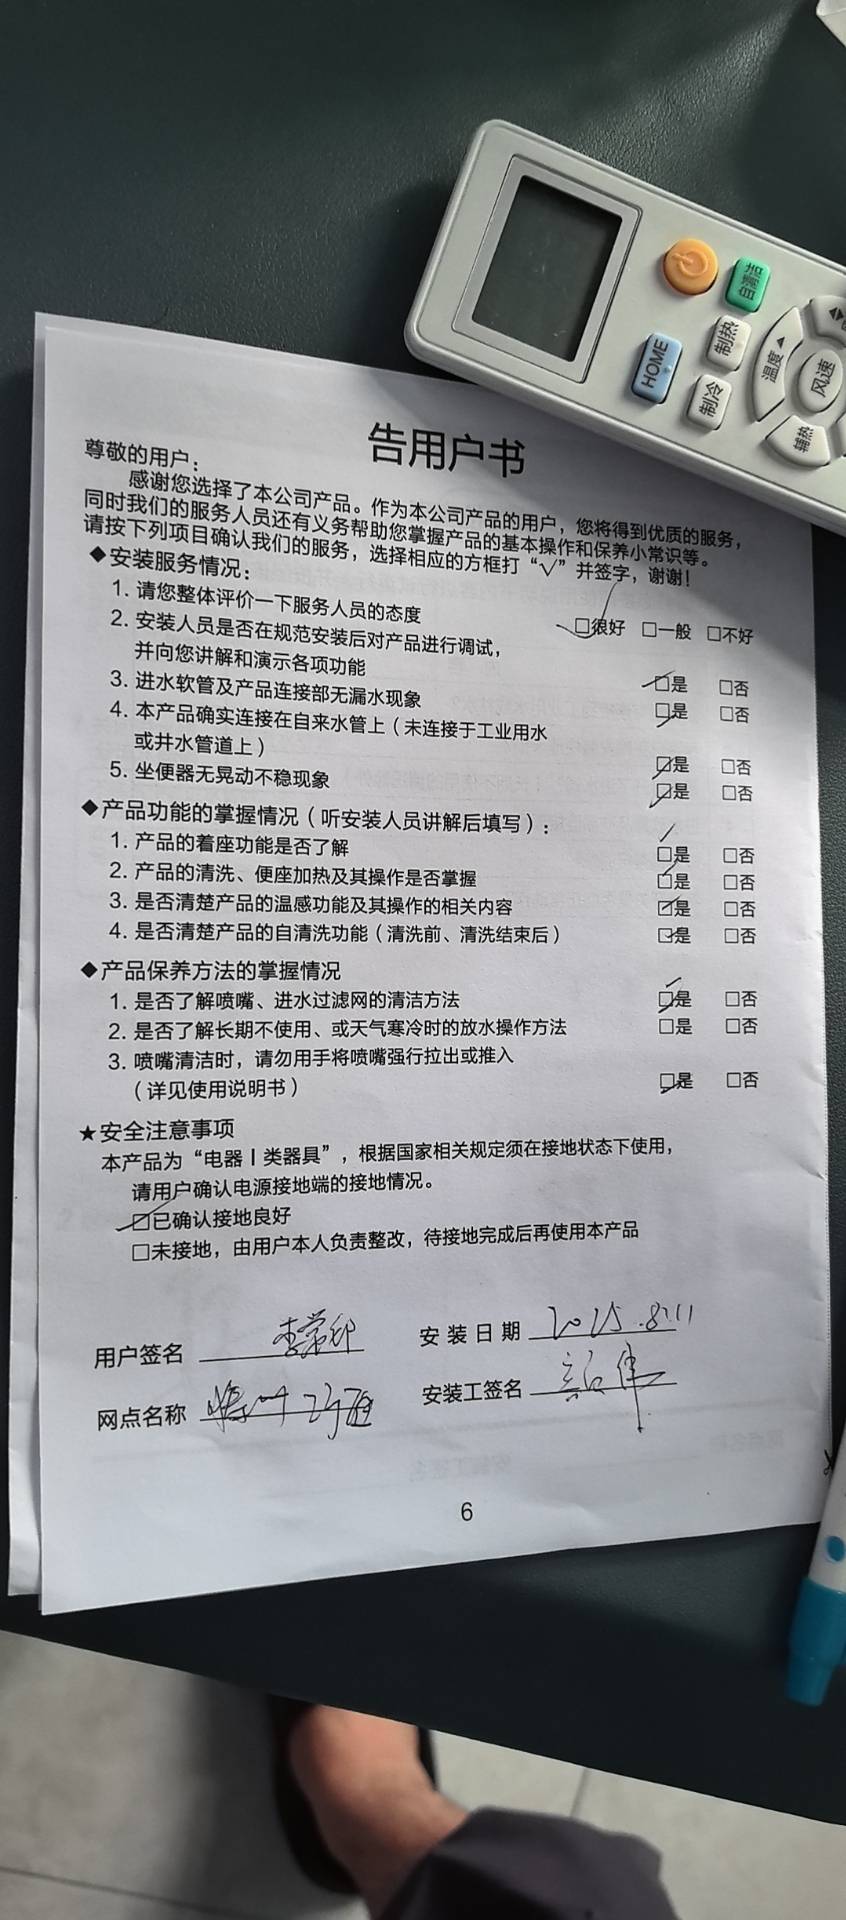 自清洁
HOME
制热
制冷
温度
风速
辅热
告用户书
尊敬的用户：
感谢您选择了本公司产品。作为本公司产品的用户，您将得到优质的服务，
同时我们的服务人员还有义务帮助您掌握产品的基本操作和保养小常识等。
请按下列项目确认我们的服务，选择相应的方框打“√”并签字，谢谢！
◆安装服务情况：
1. 请您整体评价一下服务人员的态度 □很好 □一般 □不好
2. 安装人员是否在规范安装后对产品进行调试，
并向您讲解和演示各项功能 □是 □否
3. 进水软管及产品连接部无漏水现象 □是 □否
4. 本产品确实连接在自来水管上（未连接于工业用水
或井水管道上） □是 □否
5. 坐便器无晃动不稳现象 □是 □否
◆产品功能的掌握情况（听安装人员讲解后填写）：
1. 产品的着座功能是否了解 □是 □否
2. 产品的清洗、便座加热及其操作是否掌握 □是 □否
3. 是否清楚产品的温感功能及其操作的相关内容 □是 □否
4. 是否清楚产品的自清洗功能（清洗前、清洗结束后） □是 □否
◆产品保养方法的掌握情况
1. 是否了解喷嘴、进水过滤网的清洁方法 □是 □否
2. 是否了解长期不使用、或天气寒冷时的放水操作方法 □是 □否
3. 喷嘴清洁时，请勿用手将喷嘴强行拉出或推入
（详见使用说明书） □是 □否
★安全注意事项
本产品为“电器Ⅰ类器具”，根据国家相关规定须在接地状态下使用，
请用户确认电源接地端的接地情况。
□已确认接地良好
□未接地，由用户本人负责整改，待接地完成后再使用本产品
用户签名 安装日期 2025.8.11
网点名称 安装工签名
6